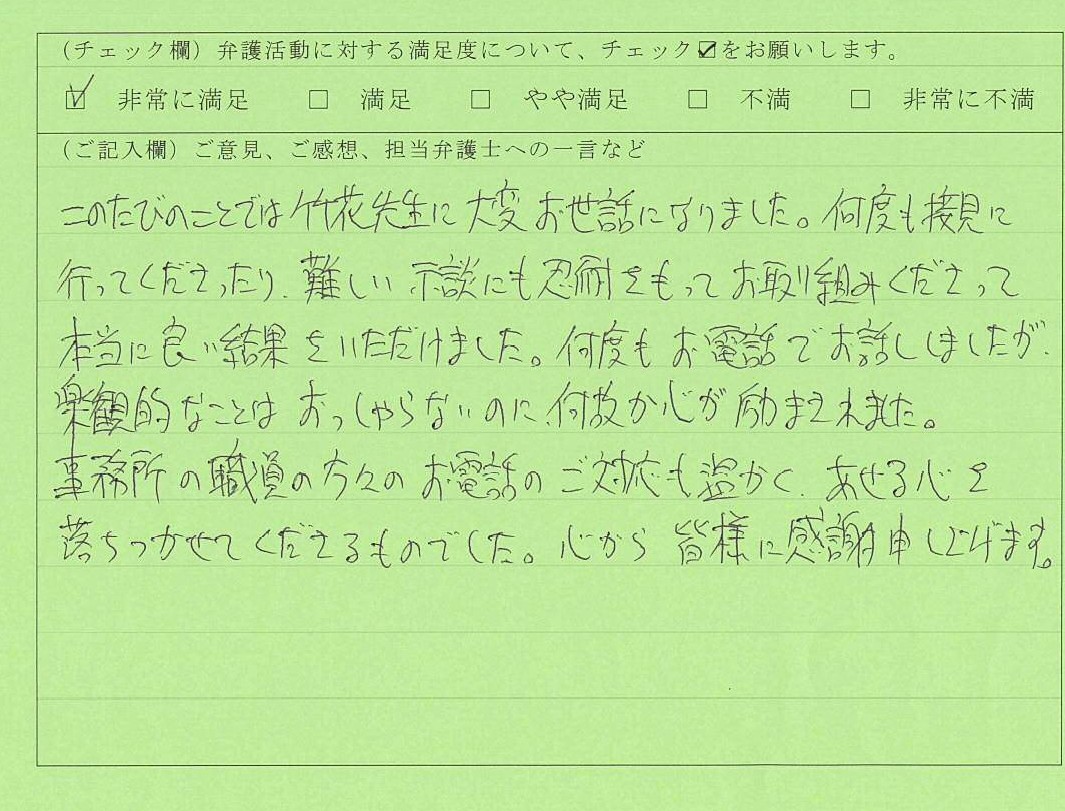 (チェック欄) 弁護活動に対する満足度について、チェック☑をお願いします。
☑ 非常に満足 □ 満足 □ やや満足 □ 不満 □ 非常に不満
(ご記入欄) ご意見、ご感想、担当弁護士への一言など
このたびのことでは竹花先生に大変お世話になりました。何度も接見に
行ってくださったり、難しい示談にも忍耐をもってお取り組みくださって
本当に良い結果をいただけました。何度もお電話でお話ししましたが、
楽観的なことはおっしゃらないのに、何故か心が励まされました。
事務所の職員の方々のお電話のご対応も温かく、あせる心を
落ちつかせてくださるものでした。心から皆様に感謝申し上げます。